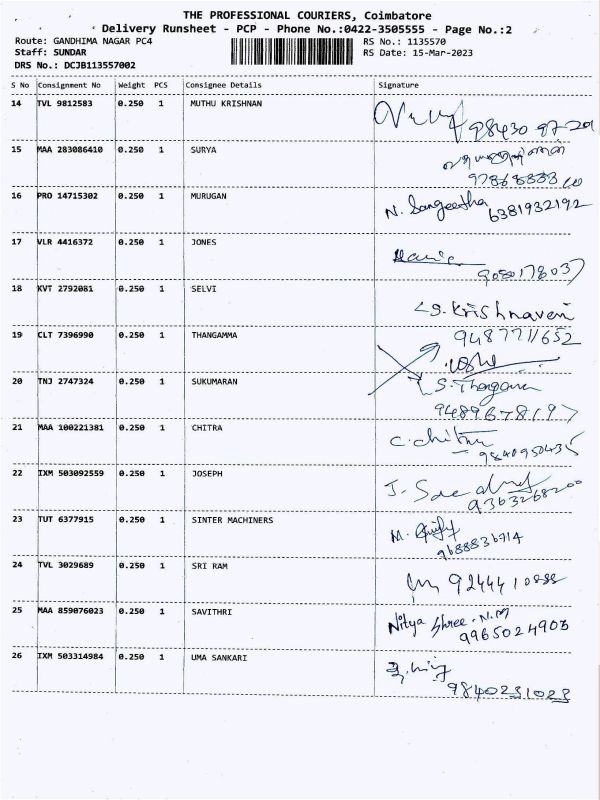 THE PROFESSIONAL COURIERS, Coimbatore
Delivery Runsheet - PCP - Phone No.:0422-3505555 - Page No.:2
Route: GANDHIMA NAGAR PC4 RS No.: 1135570
Staff: SUNDAR RS Date: 15-Mar-2023
DRS No.: DCJB113557002
S No Consignment No Weight PCS Consignee Details Signature
14 TVL 9812583 0.250 1 MUTHU KRISHNAN
98430 97-201
15 MAA 283086410 0.250 1 SURYA
16 PRO 14715302 0.250 1 MURUGAN N. Sangeetha 6381932192
17 VLR 4416372 0.250 1 JONES
9080178037
18 KVT 2792081 0.250 1 SELVI
S. Krishnaveni
19 CLT 7396990 0.250 1 THANGAMMA 9487711652
20 TNJ 2747324 0.250 1 SUKUMARAN
9489678197
21 MAA 100221381 0.250 1 CHITRA C. Chitra
9840950435
22 IXM 503092559 0.250 1 JOSEPH
9363268200
23 TUT 6377915 0.250 1 SINTER MACHINERS
9688836714
24 TVL 3029689 0.250 1 SRI RAM
9244410888
25 MAA 859076023 0.250 1 SAVITHRI Nitya Shree. N.M
9965024903
26 IXM 503314984 0.250 1 UMA SANKARI
9840231023